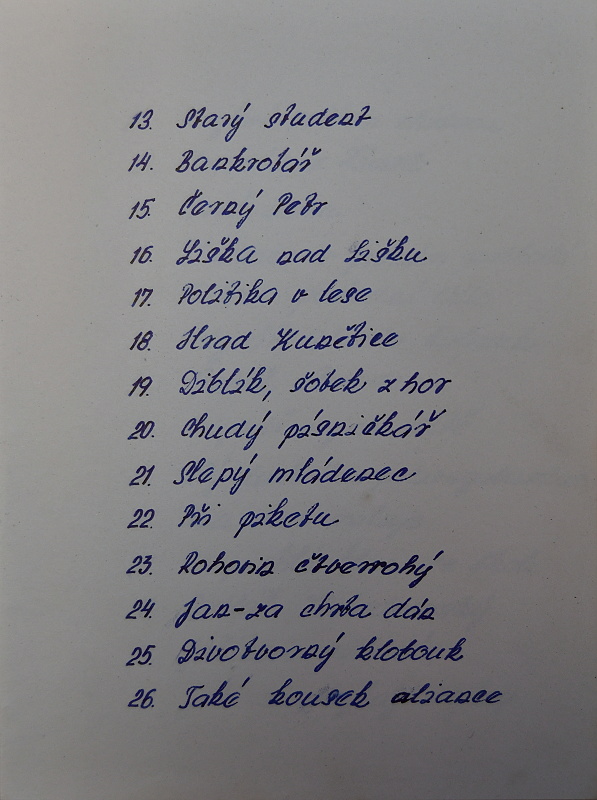 13. Starý student
14. Bankrotář
15. Černý Petr
16. Liška nad lišku
17. Politika v lese
18. Hrad Kunětice
19. Diblík, šotek z hor
20. Chudý písničkář
21. Slepý mládenec
22. Při piketu
23. Rohovín čtverrohý
24. Jan-za chrta dán
25. Divotvorný klobouk
26. Také kousek aliance